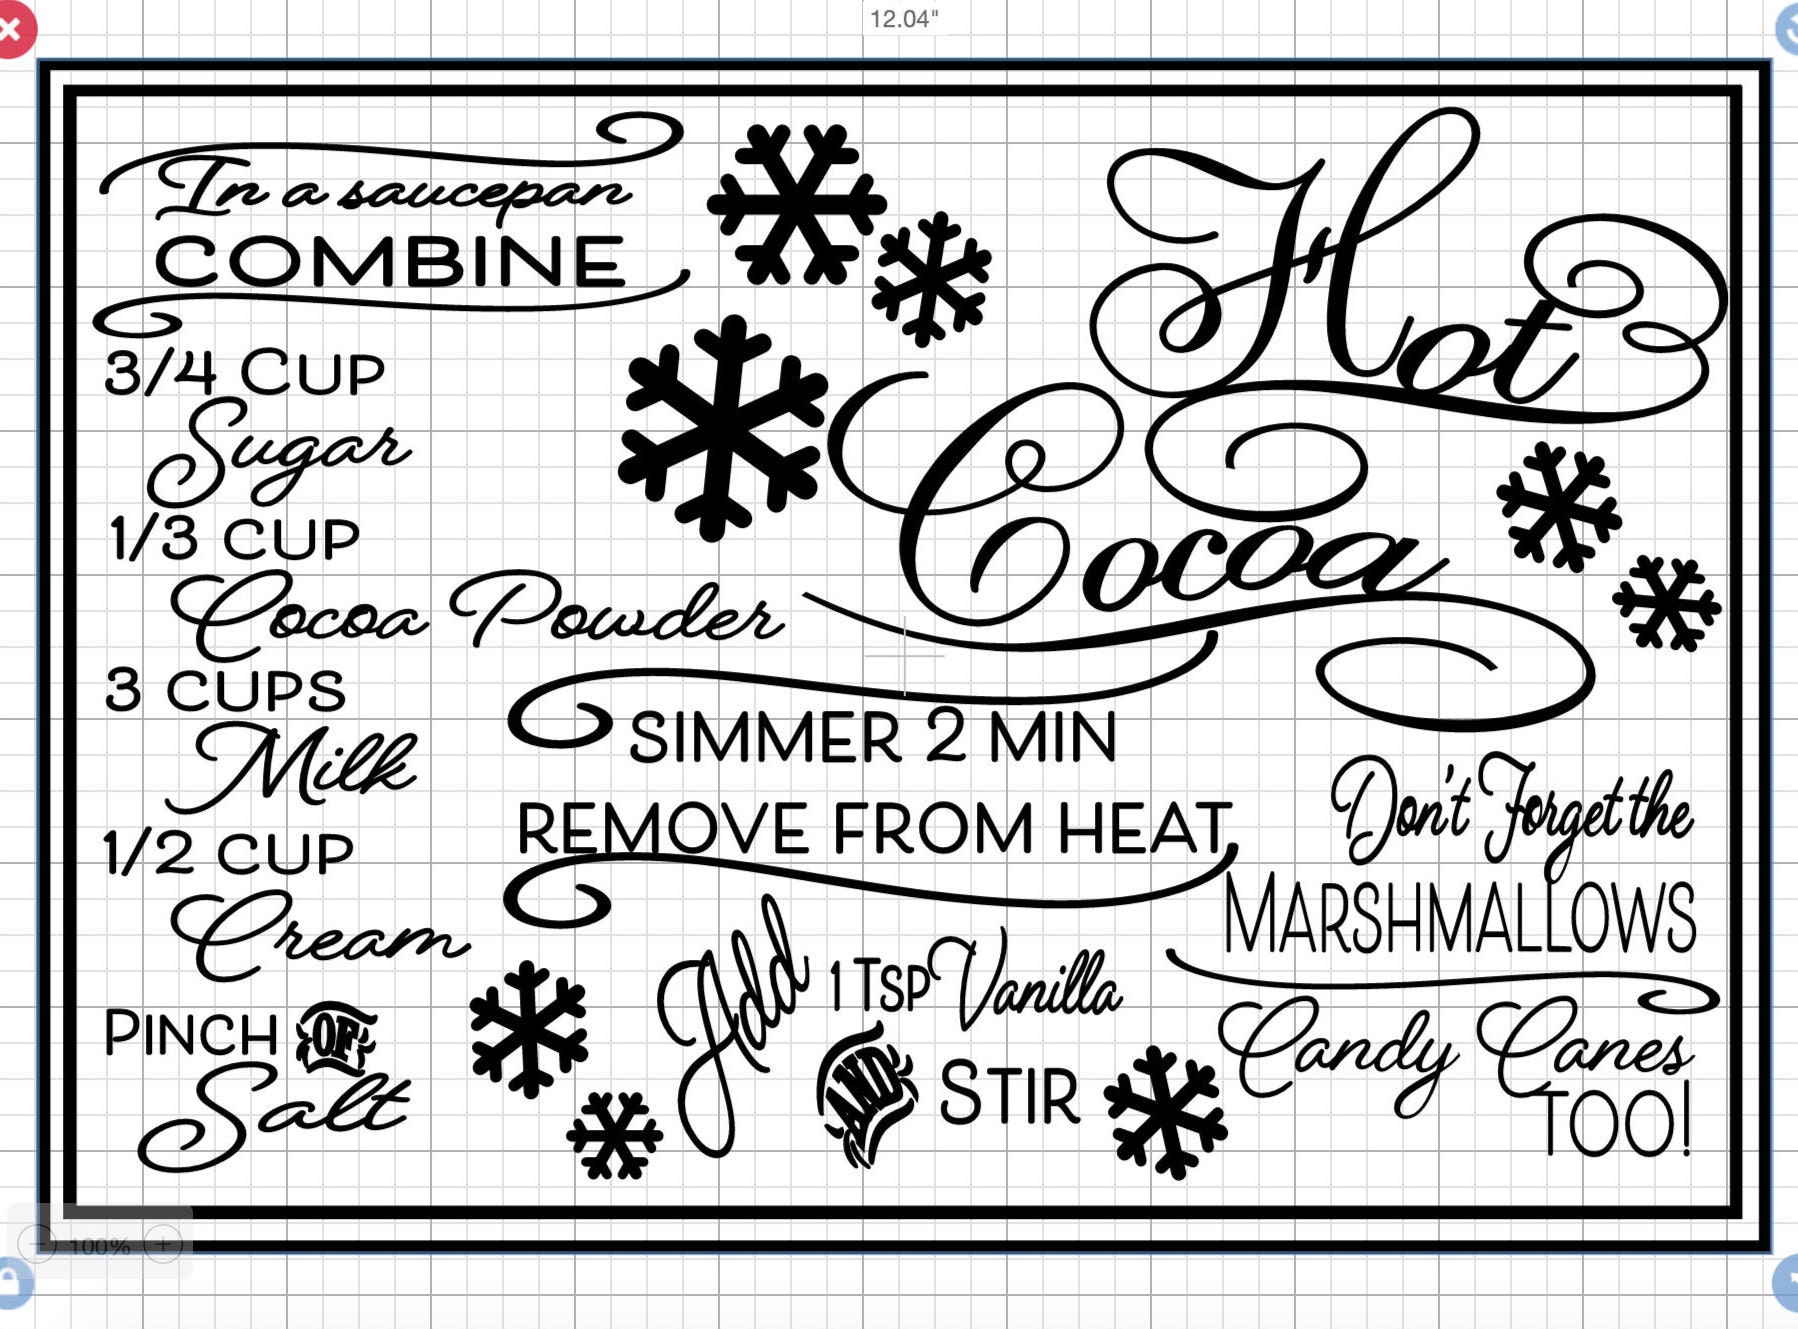 12.04"
In a saucepan
COMBINE
3/4 CUP
Sugar
1/3 CUP
Cocoa Powder
3 CUPS
Milk
1/2 CUP
Cream
PINCH OF
Salt
Hot
Cocoa
SIMMER 2 MIN
REMOVE FROM HEAT
Add 1 TSP Vanilla
AND STIR
Don't Forget the
MARSHMALLOWS
Candy Canes
TOO!
100%